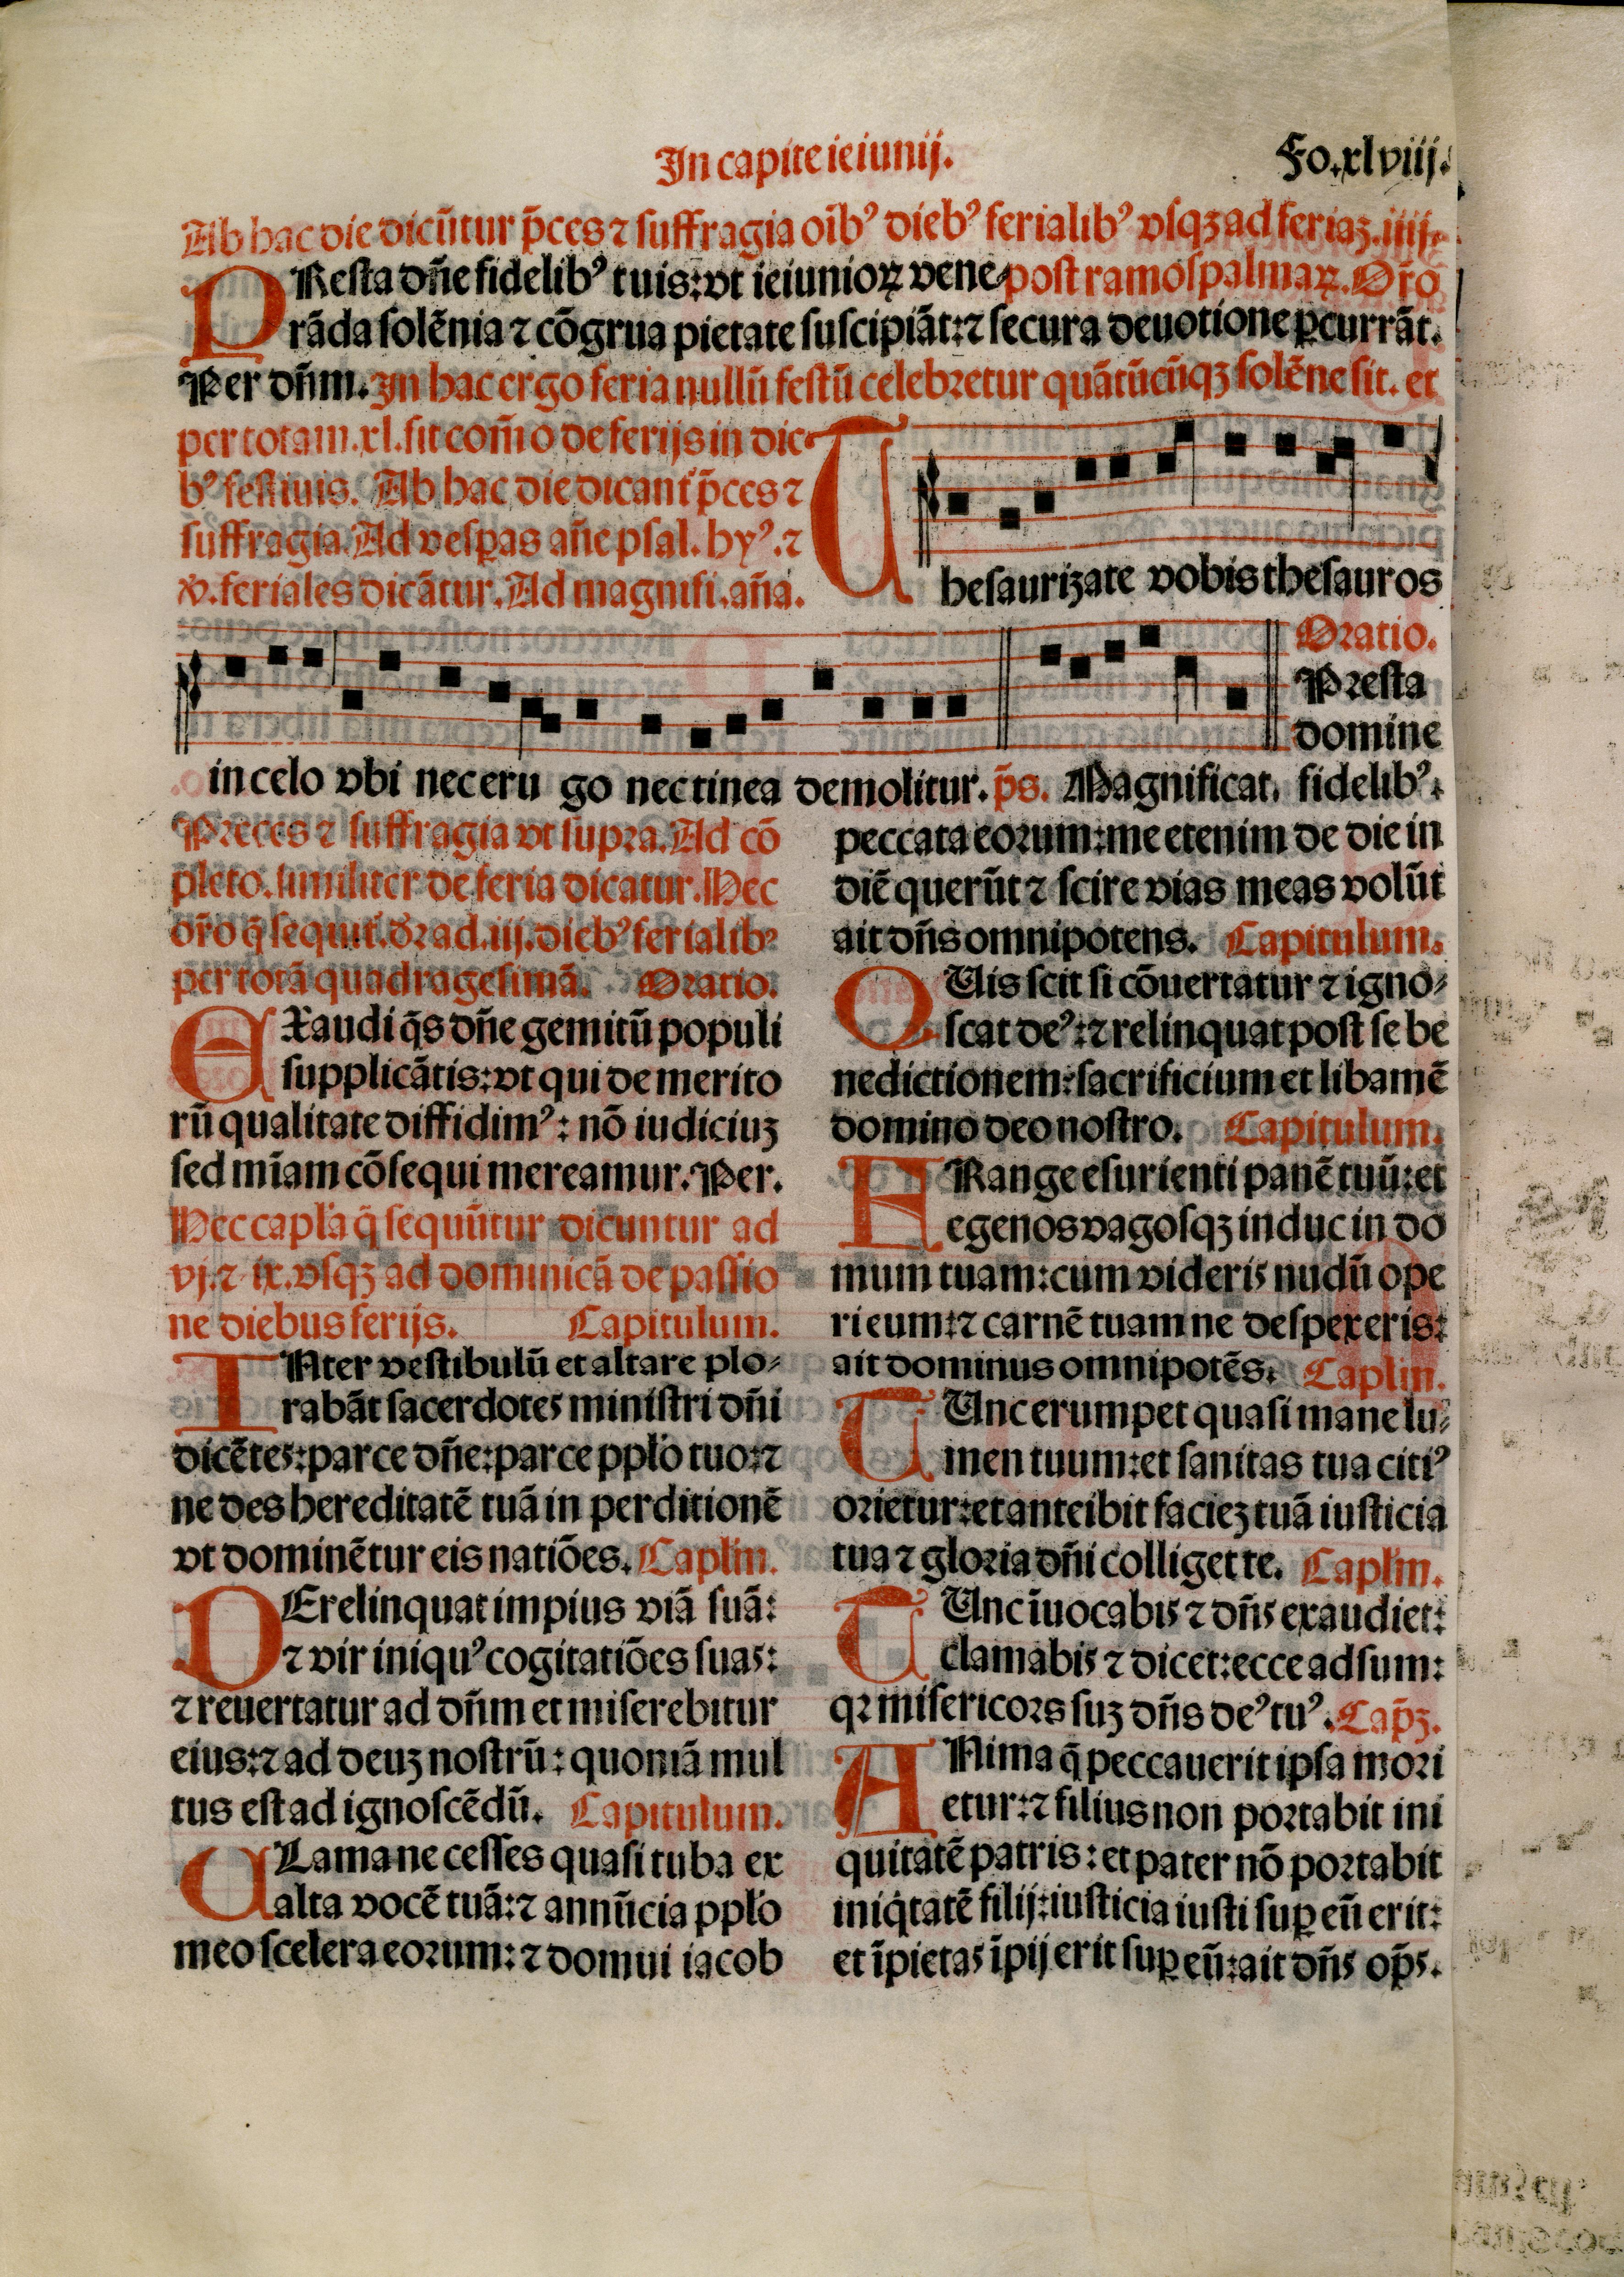 In capite ieiunij.
Fo.xlviij.
Ab hac die dicūtur p̄ces ⁊ suffragia oībꝰ diebꝰ ferialibꝰ vsqꝫ ad feriaꝫ.iiij.
PResta dn̄e fidelibꝰ tuis:vt ieiunioꝝ vene⸗post ramos palmaꝝ.Or̄o
rāda solēnia ⁊ cōgrua pietate suscipiāt:⁊ secura deuotione ꝑcurrāt.
Per dn̄m. In hac ergo feria nullū festū celebretur quātūcūqꝫ solēne sit. et
per totam.xl.sit com̄o de ferijs in die⸗
bꝰ festiuis. Ab hac die dicant᷑ p̄ces ⁊
suffragia. Ad vesꝑas an̄e psal. hyꝰ.⁊
℣.feriales dicātur. Ad magnifi.an̄a.
Thesaurizate vobis thesauros
in celo vbi nec eru go nec tinea demolitur. p̄s. Magnificat.
Oratio.
Presta
domine
fidelibꝰ.
Preces ⁊ suffragia vt supra. Ad cō
pleto. similiter de feria dicatur. Hec
or̄o q̄ sequit᷑.dr̄ ad.iij.diebꝰ ferialibꝰ
per totā quadragesimā. Oratio.
EXaudi q̄s dn̄e gemitū populi
supplicātis:vt qui de merito
rū qualitate diffidimꝰ: nō iudiciuꝫ
sed mīam cōsequi mereamur. Per.
Hec capl'a q̄ sequūtur dicuntur ad
vj.⁊ ix.vsqꝫ ad dominicā de passio
ne diebus ferijs. Capitulum.
INter vestibulū et altare plo⸗
rabāt sacerdotes ministri dn̄i
dicētes:parce dn̄e:parce ppl'o tuo:⁊
ne des hereditatē tuā in perditionē
vt dominētur eis natiōes. Capl'm.
DErelinquat impius viā suā:
⁊ vir iniquꝰ cogitatiōes suas:
⁊ reuertatur ad dn̄m et miserebitur
eius:⁊ ad deuꝫ nostrū: quoniā mul
tus est ad ignoscēdū. Capitulum.
CLama ne cesses quasi tuba ex
alta vocē tuā:⁊ annūcia ppl'o
meo scelera eorum:⁊ domui iacob
peccata eorum:me etenim de die in
diē querūt ⁊ scire vias meas volūt
ait dn̄s omnipotens. Capitulum.
QUis scit si cōuertatur ⁊ igno⸗
scat deꝰ:⁊ relinquat post se be
nedictionem:sacrificium et libamē
domino deo nostro. Capitulum.
FRange esurienti panē tuū:et
egenos vagosqꝫ induc in do
mum tuam:cum videris nudū ope
ri eum:⁊ carnē tuam ne despexeris:
ait dominus omnipotēs. Capl'm.
TUnc erumpet quasi mane lu⸗
men tuum:et sanitas tua citiꝰ
orietur:et anteibit facieꝫ tuā iusticia
tua ⁊ gloria dn̄i colliget te. Capl'm.
TUnc īuocabis ⁊ dn̄s exaudiet:
clamabis ⁊ dicet:ecce adsum:
qꝛ misericors suꝫ dn̄s deꝰ tuꝰ. Cap̄ꝫ.
ANima q̄ peccauerit ipsa mori
etur:⁊ filius non portabit ini
quitatē patris: et pater nō portabit
iniq̇tatē filij:iusticia iusti suꝑ eū erit:
et īpietas īpij erit suꝑ eū:ait dn̄s op̄s.